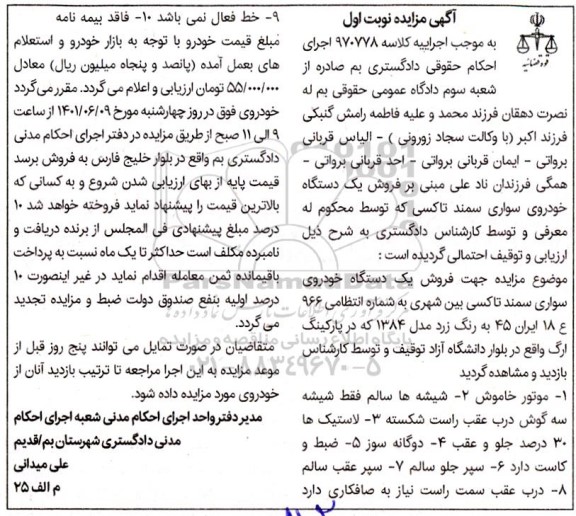 آگهی مزایده نوبت اول
به موجب اجراییه کلاسه ۹۷۰۷۷۸ اجرای
احکام حقوقی دادگستری بم صادره از
شعبه سوم دادگاه عمومی حقوقی بم له
نصرت دهقان فرزند محمد و علیه فاطمه رامش گنبکی
فرزند اکبر (با وکالت سجاد زورونی ) - الیاس قربانی
برواتی - ایمان قربانی برواتی - احد قربانی برواتی -
همگی فرزندان ناد علی مبنی بر فروش یک دستگاه
خودروی سواری سمند تاکسی که توسط محکوم له
معرفی و توسط کارشناس دادگستری به شرح ذیل
ارزیابی و توقیف احتمالی گردیده است :
موضوع مزایده جهت فروش یک دستگاه خودروی
سواری سمند تاکسی بین شهری به شماره انتظامی ۹۶۶
ع ۱۸ ایران ۴۵ به رنگ زرد مدل ۱۳۸۴ که در پارکینگ
ارگ واقع در بلوار دانشگاه آزاد توقیف و توسط کارشناس
بازدید و مشاهده گردید
۱- موتور خاموش ۲- شیشه ها سالم فقط شیشه
سه گوش درب عقب راست شکسته ۳- لاستیک ها
۳۰ درصد جلو و عقب ۴- دوگانه سوز ۵- ضبط و
کاست دارد ۶- سپر جلو سالم ۷- سپر عقب سالم
۸- درب عقب سمت راست نیاز به صافکاری دارد
۹- خط فعال نمی باشد ۱۰- فاقد بیمه نامه
مبلغ قیمت خودرو با توجه به بازار خودرو و استعلام
های بعمل آمده (پانصد و پنجاه میلیون ریال) معادل
۵۵/۰۰۰/۰۰۰ تومان ارزیابی و اعلام می گردد. مقرر می گردد
خودروی فوق در روز چهارشنبه مورخ ۱۴۰۱/۰۶/۰۹ از ساعت
۹ الی ۱۱ صبح از طریق مزایده در دفتر اجرای احکام مدنی
دادگستری بم واقع در بلوار خلیج فارس به فروش برسد
قیمت پایه از بهای ارزیابی شدن شروع و به کسانی که
بالاترین قیمت را پیشنهاد نماید فروخته خواهد شد ۱۰
درصد مبلغ پیشنهادی فی المجلس از برنده دریافت و
نامبرده مکلف است حداکثر تا یک ماه نسبت به پرداخت
باقیمانده ثمن معامله اقدام نماید در غیر اینصورت ۱۰
درصد اولیه بنفع صندوق دولت ضبط و مزایده تجدید
می گردد.
متقاضیان در صورت تمایل می توانند پنج روز قبل از
موعد مزایده به این اجرا مراجعه تا ترتیب بازدید آنان از
خودروی مورد مزایده داده شود.
مدیر دفتر واحد اجرای احکام مدنی شعبه اجرای احکام
مدنی دادگستری شهرستان بم/قدیم
علی میدانی
م الف ۲۵
ParsNamadData
پایگاه اطلاع رسانی مناقصه و مزایده
۰۲۱-۸۸۳۴۹۶۷۰-۵